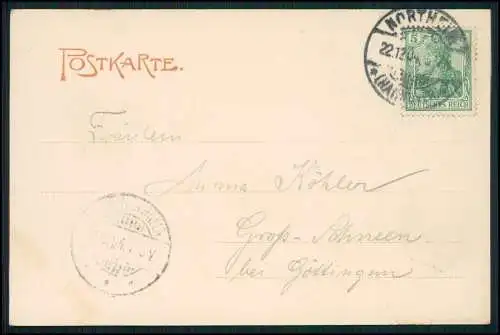 POSTKARTE.
NORTHEIM
22.12.04
(HAN
5
DEUTSCHES REICH
Fräulein
Anna Köhler
Groß-Schneen
bei Göttingen